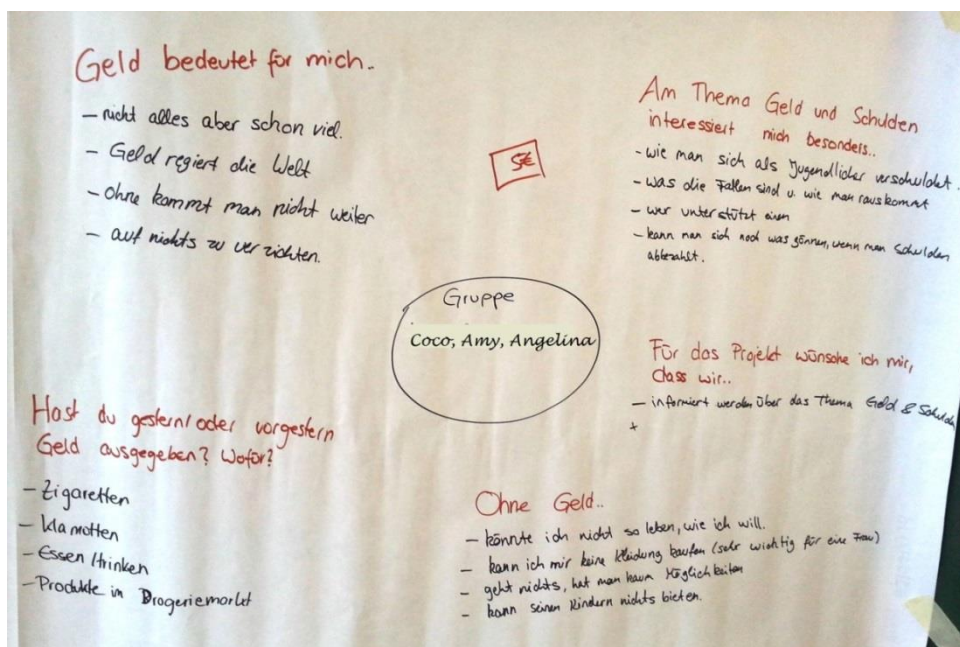 Geld bedeutet für mich..
- nicht alles aber schon viel.
- Geld regiert die Welt
- ohne kommt man nicht weiter
- auf nichts zu verzichten.
5€
Am Thema Geld und Schulden
interessiert mich besonders..
- wie man sich als Jugendlicher verschuldet.
- was die Fallen sind u. wie man rauskommt
- wer unterstützt einen
- kann man sich noch was gönnen, wenn man Schulden
abbezahlt.
Gruppe
Coco, Amy, Angelina
Für das Projekt wünsche ich mir,
dass wir..
- informiert werden über das Thema Geld & Schulden
+
Hast du gestern/oder vorgestern
Geld ausgegeben? Wofür?
- Zigaretten
- Klamotten
- Essen/trinken
- Produkte im Drogeriemarkt
Ohne Geld..
- könnte ich nicht so leben, wie ich will.
- kann ich mir keine Kleidung kaufen (sehr wichtig für eine Frau)
- geht nichts, hat man kaum Möglichkeiten
- kann seinen Kindern nichts bieten.